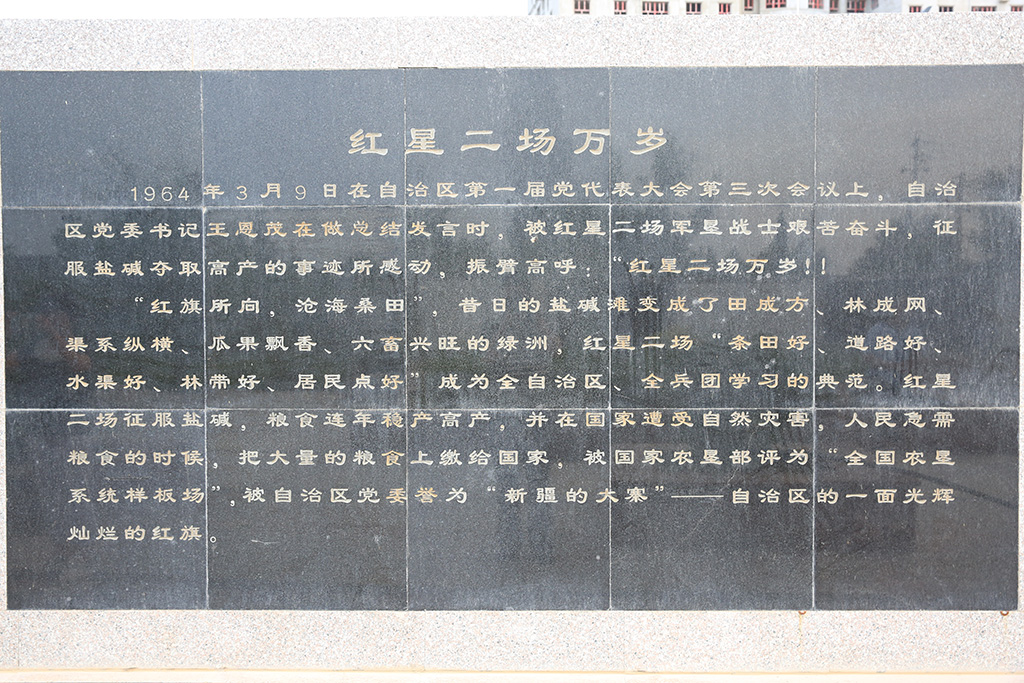 红星二场万岁
1964年3月9日在自治区第一届党代表大会第三次会议上，自治
区党委书记王恩茂在做总结发言时，被红星二场军垦战士艰苦奋斗，征
服盐碱夺取高产的事迹所感动，振臂高呼：“红星二场万岁！！
“红旗所向，沧海桑田”，昔日的盐碱滩变成了田成方、林成网、
渠系纵横、瓜果飘香、六畜兴旺的绿洲，红星二场“条田好、道路好、
水渠好、林带好、居民点好”成为全自治区、全兵团学习的典范。红星
二场征服盐碱，粮食连年稳产高产，并在国家遭受自然灾害，人民急需
粮食的时候，把大量的粮食上缴给国家，被国家农垦部评为“全国农垦
系统样板场”，被自治区党委誉为“新疆的大寨”——自治区的一面光辉
灿烂的红旗。